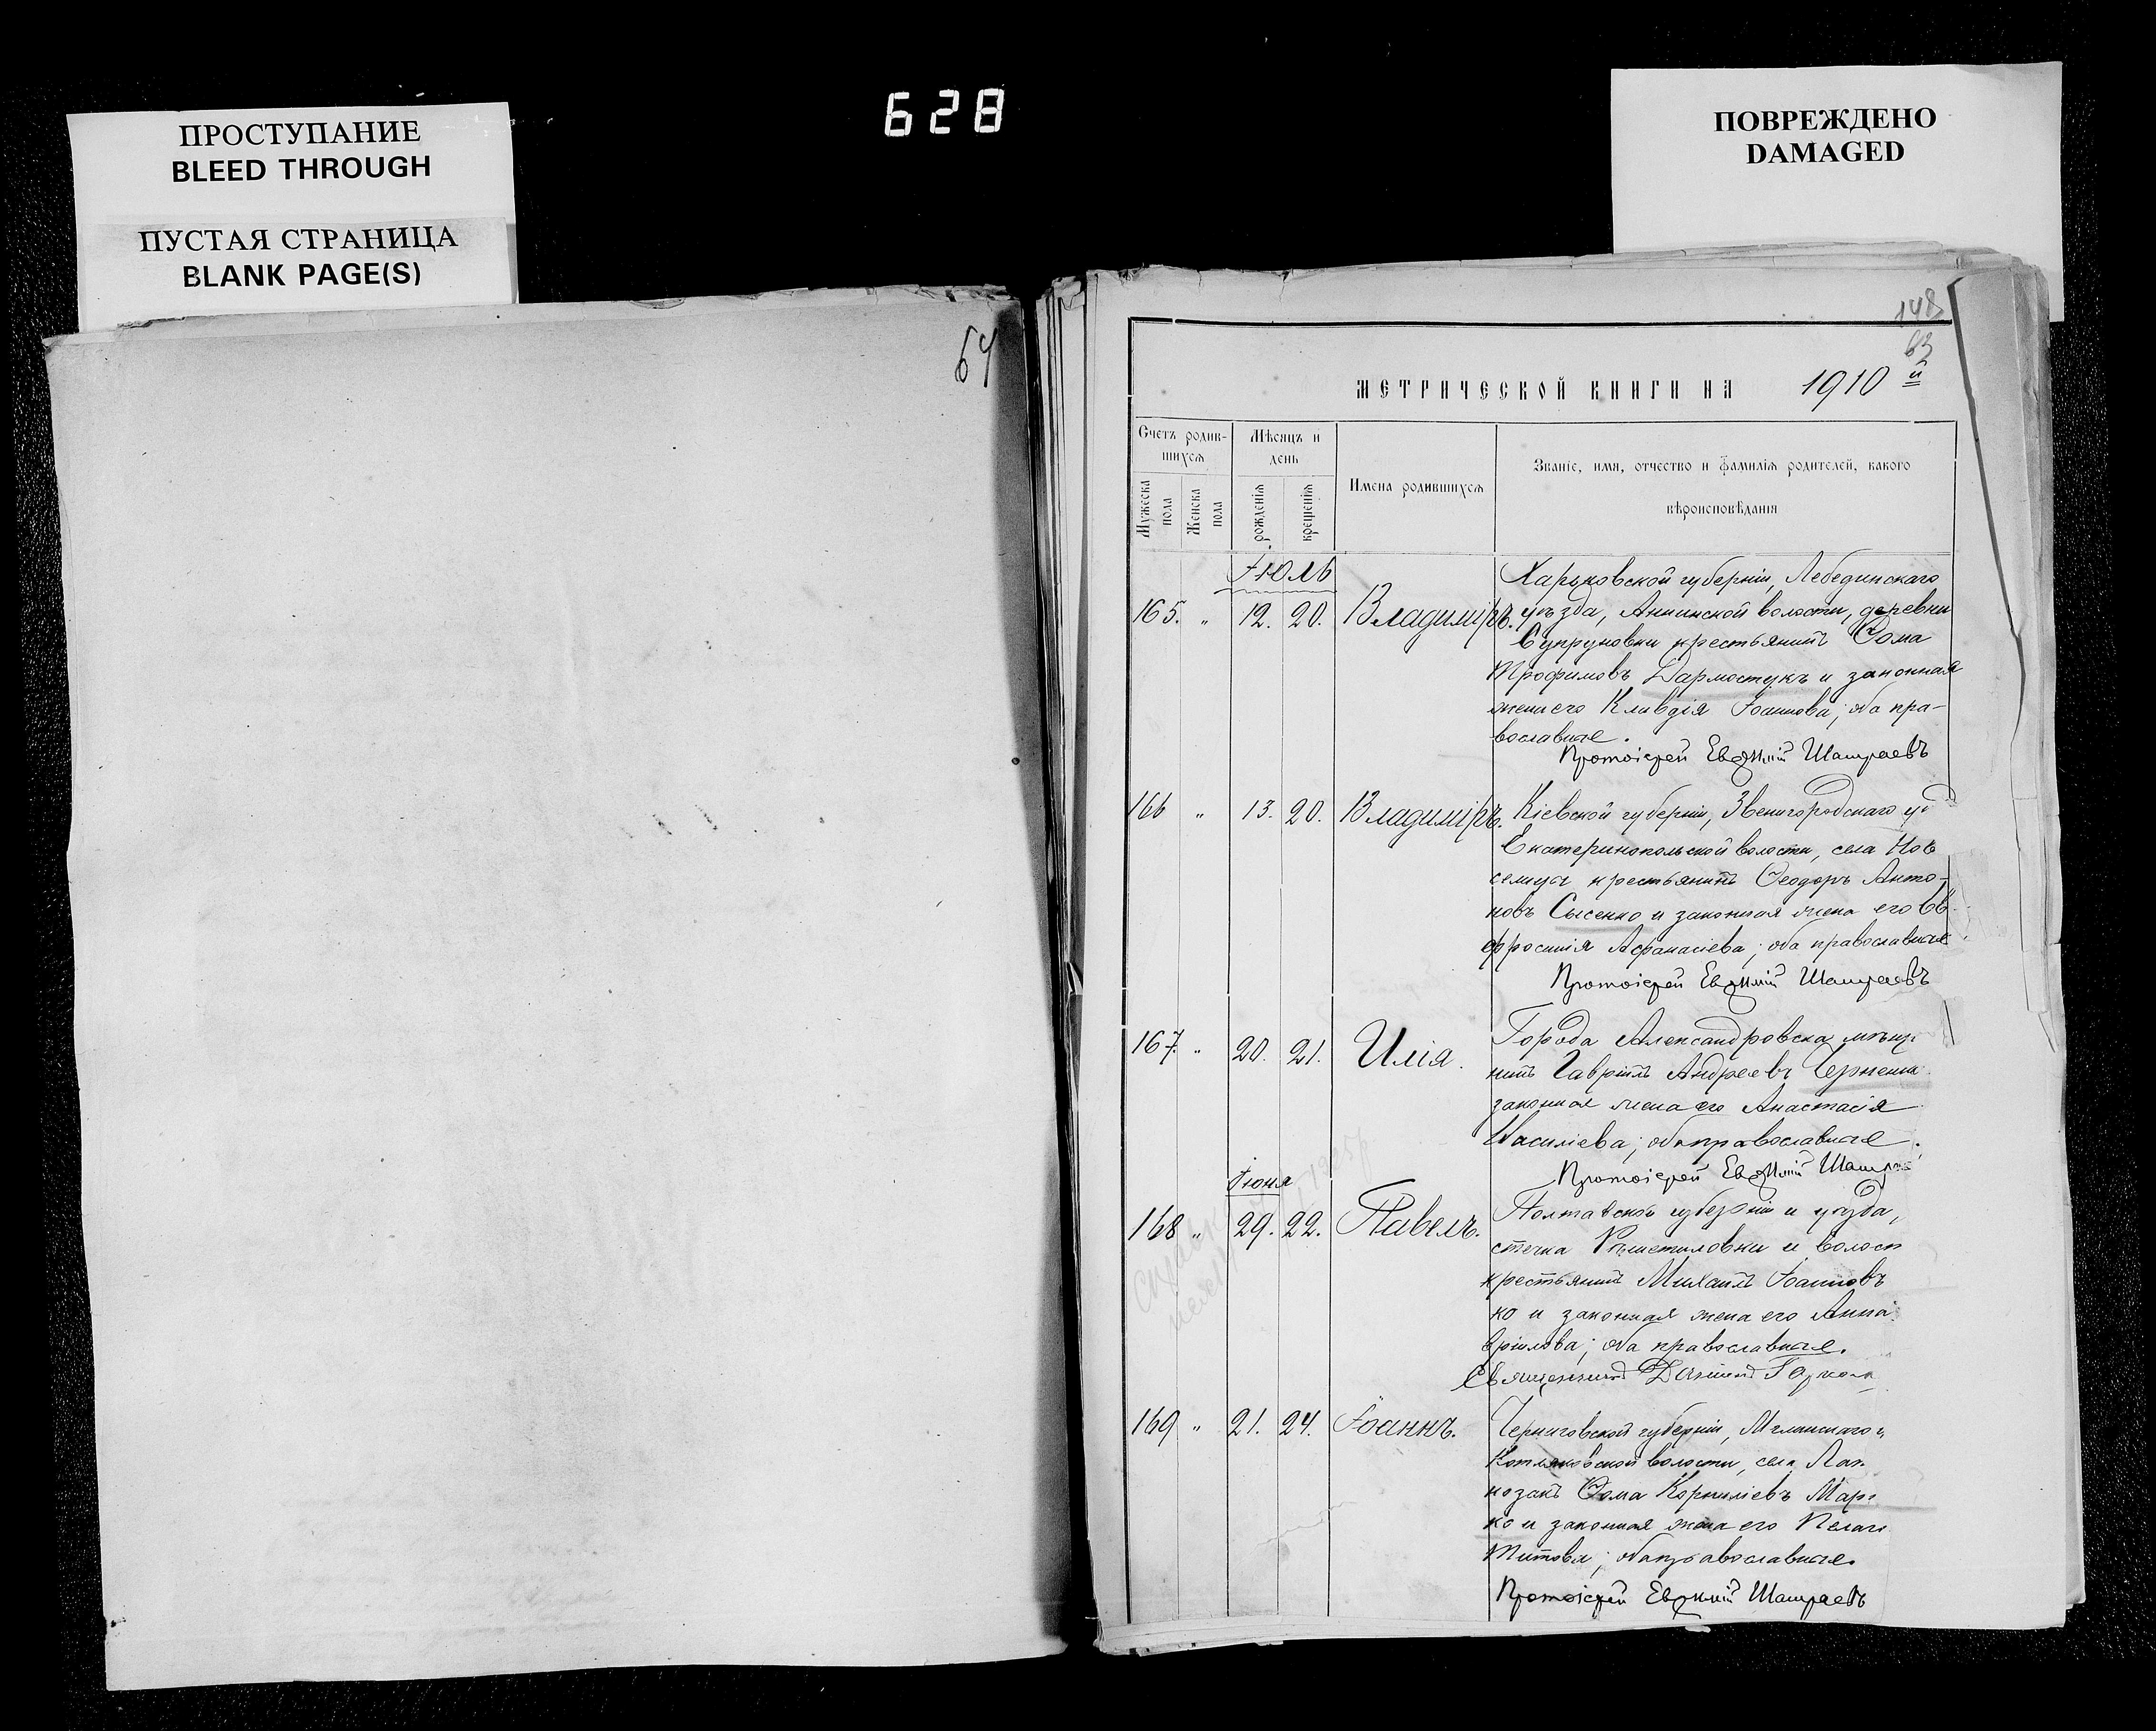 ПРОСТУПАНИЕ
BLEED THROUGH
ПУСТАЯ СТРАНИЦА
BLANK PAGE(S)
628
ПОВРЕЖДЕНО
DAMAGED
64
148
63
МЕТРИЧЕСКОЙ КНИГИ НА 1910 й
Счетъ родившихся
Мѣсяцъ и день
Имена родившихся
Званіе, имя, отчество и фамилія родителей, какого
вѣроисповѣданія
Мужеска пола
Женска пола
рожденія
крещенія
Іюль
Харьковской губерніи, Лебединскаго
165. " 12. 20. Владиміръ. уѣзда, Аннинской волости, деревни
Супруновки крестьянинъ Ѳома
Трофимовъ Дармостукъ и законная
жена его Клавдія Іоаннова; оба пра-
вославные.
Протоіерей Евѳимій
166 " 13. 20. Владиміръ. Кіевской губерніи, Звенигородскаго у
Екатеринопольской волости, села Нов
крестьянинъ Ѳеодоръ Анто-
новъ Сысенко и законная жена его Ев-
фросинія Афанасіева; оба православные
Протоіерей Евѳимій
167. " 20. 21. Илія. Города Александровска мѣщ
нинъ Гавріилъ Андреевъ
законная жена его Анастасія
Василіева; оба православные.
Протоіерей Евѳимій
Іюня
168 " 29. 22. Павелъ. Полтавской губерніи и уѣзда,
стечка Рѣшетиловки и волост
крестьянинъ Михаилъ Іоанновъ
ко и законная жена его Анна
вріилова; оба православные.
Священникъ
169 " 21. 24. Іоаннъ. Черниговской губерніи, Мглинскаго у
Котляковской волости, села
козакъ Ѳома Корниліевъ Мар
ко и законная жена его Пелаг
Титова; оба православные.
Протоіерей Евѳимій